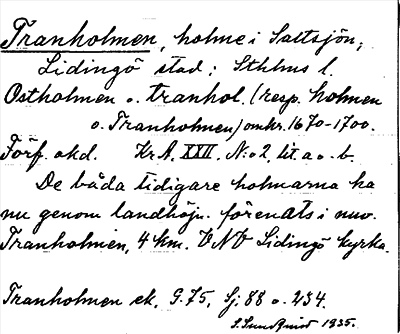 Tranholmen, holme i Saltsjön;
Lidingö stad; Sthlms l.
Ostholmen o. tranhol. (resp. holmen
o. Tranholmen) omkr. 1670-1700.
Förf. okd. KrA. XXII. N:o 2, lit. a o. b.
De båda tidigare holmarna ha
nu genom landhöjn. förenats i nuv.
Tranholmen, 4 km. VNV Lidingö kyrka.
Tranholmen ek. G. 75, Sj. 88 o. 234.
S. Sundqvist 1935.